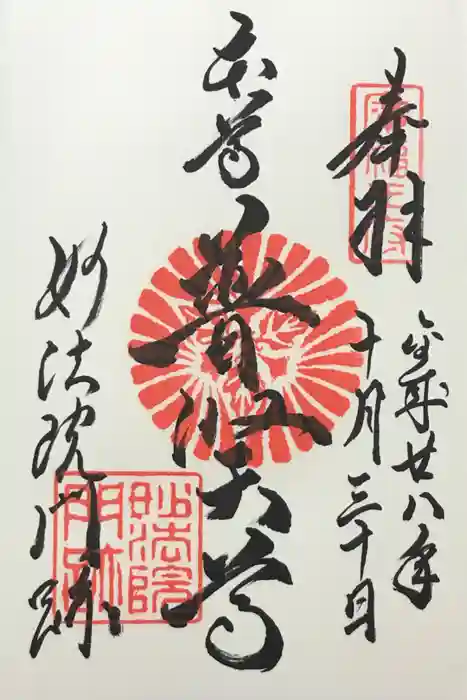 奉拝
平成廿八年
十月三十日
本尊
普賢尊
妙法院門跡
妙法院
門跡